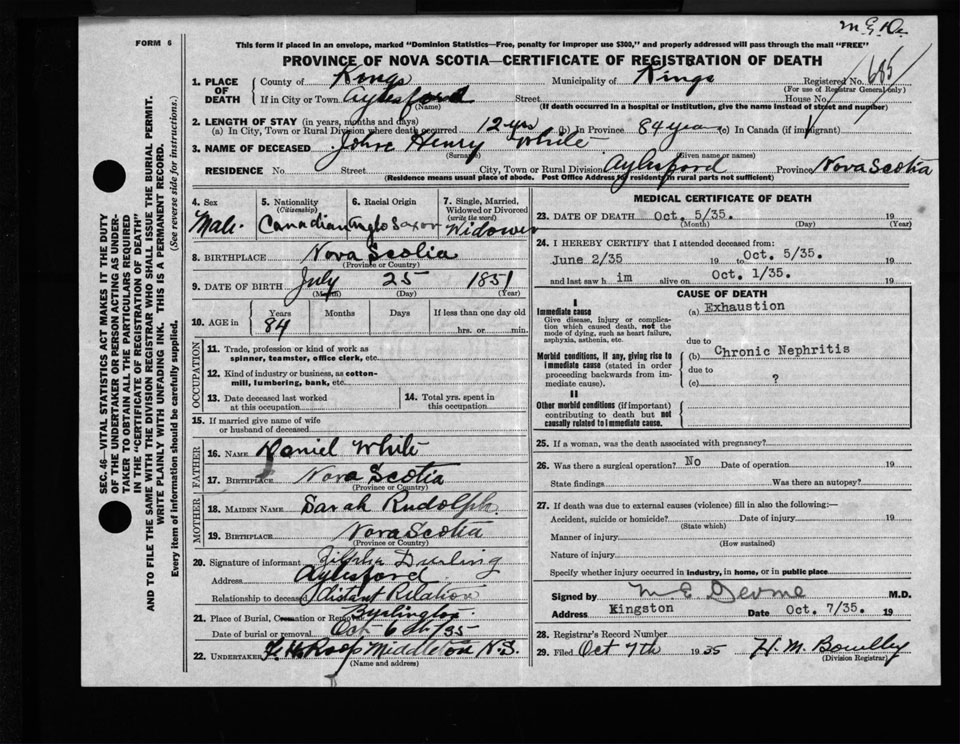 M.E.De.
FORM 6
This form if placed in an envelope, marked "Dominion Statistics—Free, penalty for improper use $300," and properly addressed will pass through the mail "FREE"
PROVINCE OF NOVA SCOTIA—CERTIFICATE OF REGISTRATION OF DEATH
1. PLACE OF DEATH County of Kings Municipality of Kings Registered No. 685
(For use of Registrar General only)
If in City or Town Aylesford Street House No.
(Name) (If death occurred in a hospital or institution, give the name instead of street and number)
2. LENGTH OF STAY (in years, months and days)
(a) In City, Town or Rural Division where death occurred 12 yrs (b) In Province 84 years (c) In Canada (if immigrant)
3. NAME OF DECEASED John Henry White
(Surname) (Given name or names)
RESIDENCE No. Street City, Town or Rural Division Aylesford Province Nova Scotia
(Residence means usual place of abode. Post Office Address for residents in rural parts not sufficient)
4. Sex Male
5. Nationality (Citizenship) Canadian
6. Racial Origin Anglo Saxon
7. Single, Married, Widowed or Divorced (write the word) Widower
8. BIRTHPLACE Nova Scotia
(Province or Country)
9. DATE OF BIRTH July 25 1851
(Month) (Day) (Year)
10. AGE in Years 84 Months Days If less than one day old
hrs. or min.
OCCUPATION
11. Trade, profession or kind of work as spinner, teamster, office clerk, etc.
12. Kind of industry or business, as cotton-mill, lumbering, bank, etc.
13. Date deceased last worked at this occupation
14. Total yrs. spent in this occupation
15. If married give name of wife or husband of deceased
FATHER
16. NAME Daniel White
17. BIRTHPLACE Nova Scotia
(Province or Country)
MOTHER
18. MAIDEN NAME Sarah Rudolph
19. BIRTHPLACE Nova Scotia
(Province or Country)
20. Signature of informant Zilpha Durling
Address Aylesford
Relationship to deceased distant Relation
21. Place of Burial, Cremation or Removal
Date of burial or removal Oct 6th/35
22. UNDERTAKER Middleton N.S.
(Name and address)
MEDICAL CERTIFICATE OF DEATH
23. DATE OF DEATH Oct. 5/35. 19
(Month) (Day) (Year)
24. I HEREBY CERTIFY that I attended deceased from:
June 2/35 19 to Oct. 5/35. 19
and last saw him alive on Oct. 1/35. 19
CAUSE OF DEATH
I
Immediate cause
Give disease, injury or complication which caused death, not the mode of dying, such as heart failure, asphyxia, asthenia, etc.
(a) Exhaustion
due to
Morbid conditions, if any, giving rise to immediate cause (stated in order proceeding backwards from immediate cause).
(b) Chronic Nephritis
due to
(c) ?
II
Other morbid conditions (if important) contributing to death but not causally related to immediate cause.
25. If a woman, was the death associated with pregnancy?
26. Was there a surgical operation? No Date of operation 19
State findings Was there an autopsy?
27. If death was due to external causes (violence) fill in also the following:—
Accident, suicide or homicide? Date of injury 19
(State which)
Manner of injury
(How sustained)
Nature of injury
Specify whether injury occurred in industry, in home, or in public place
Signed by M.D.
Address Kingston Date Oct. 7/35. 19
28. Registrar's Record Number
29. Filed Oct 7th 1935 H. M.
(Division Registrar)
SEC. 46—VITAL STATISTICS ACT MAKES IT THE DUTY
OF THE UNDERTAKER OR PERSON ACTING AS UNDER-
TAKER TO OBTAIN ALL THE PARTICULARS REQUIRED
IN THE "CERTIFICATE OF REGISTRATION OF DEATH"
AND TO FILE THE SAME WITH THE DIVISION REGISTRAR WHO SHALL ISSUE THE BURIAL PERMIT.
WRITE PLAINLY WITH UNFADING INK. THIS IS A PERMANENT RECORD.
Every item of information should be carefully supplied. (See reverse side for instructions.)